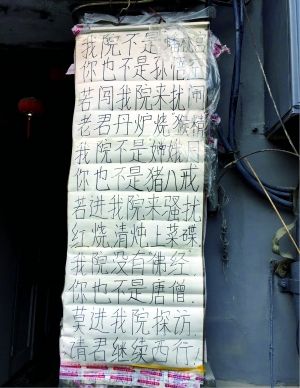 我院不是
你也不是孙悟空
若闯我院来扰闹
老君丹炉烧猴精
我院不是娥
你也不是猪八戒
若进我院来骚扰
红烧清炖上菜碟
我院没有佛经
你也不是唐僧
莫进我院探访
请君继续西行!